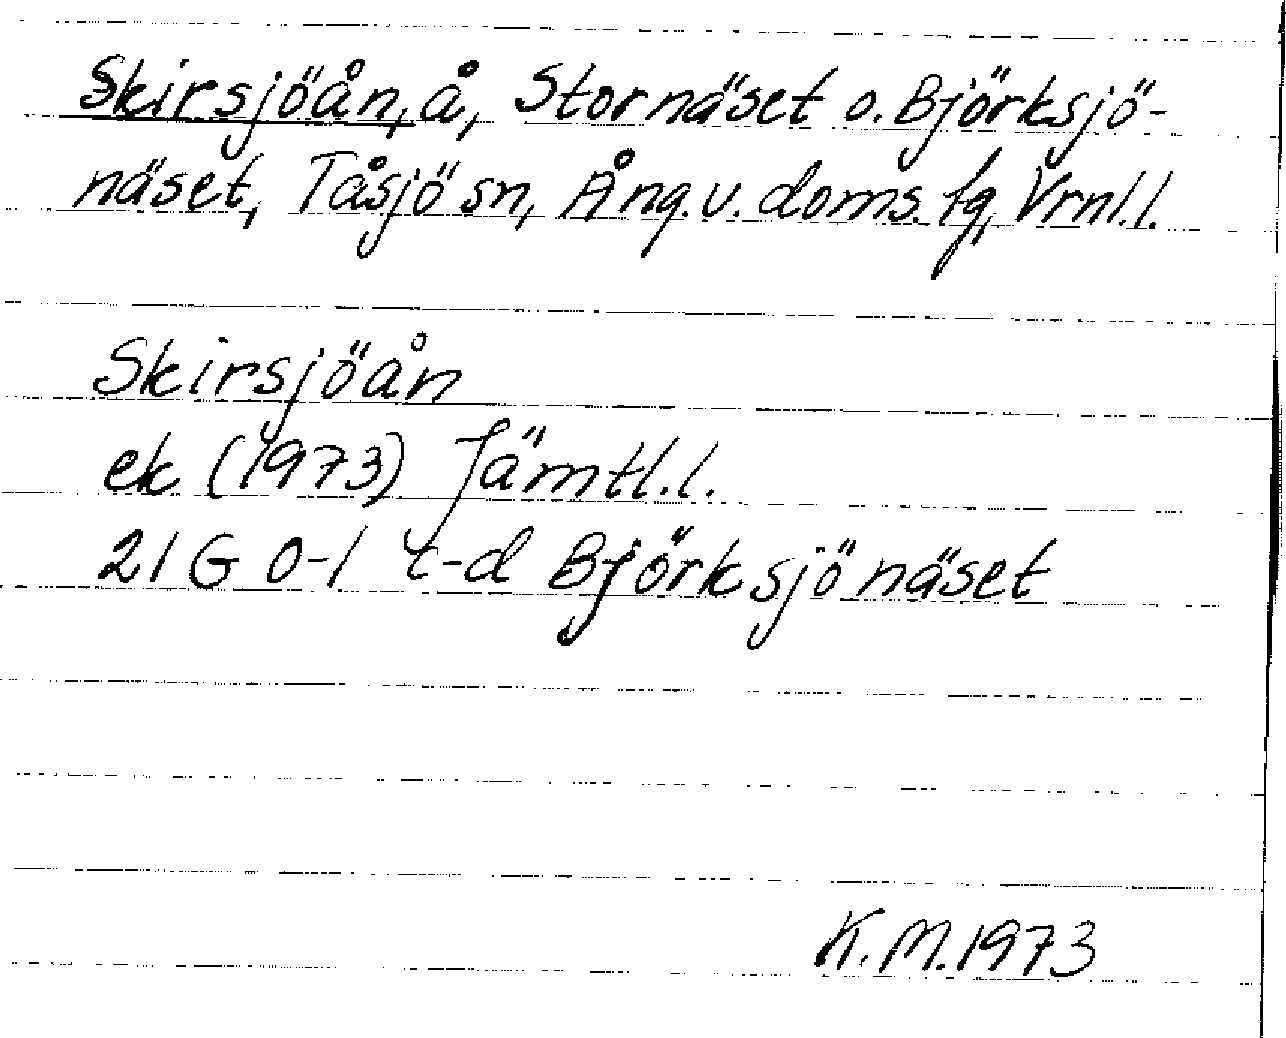 Skirsjöån, å, Stornäset o. Björksjö-
näset, Tåsjö sn, Ång. v. doms. tg, Vrnl.l.
Skirsjöån
ek (1973) Jämtl.l.
21G 0-1 t-d Björksjönäset
K.M. 1973